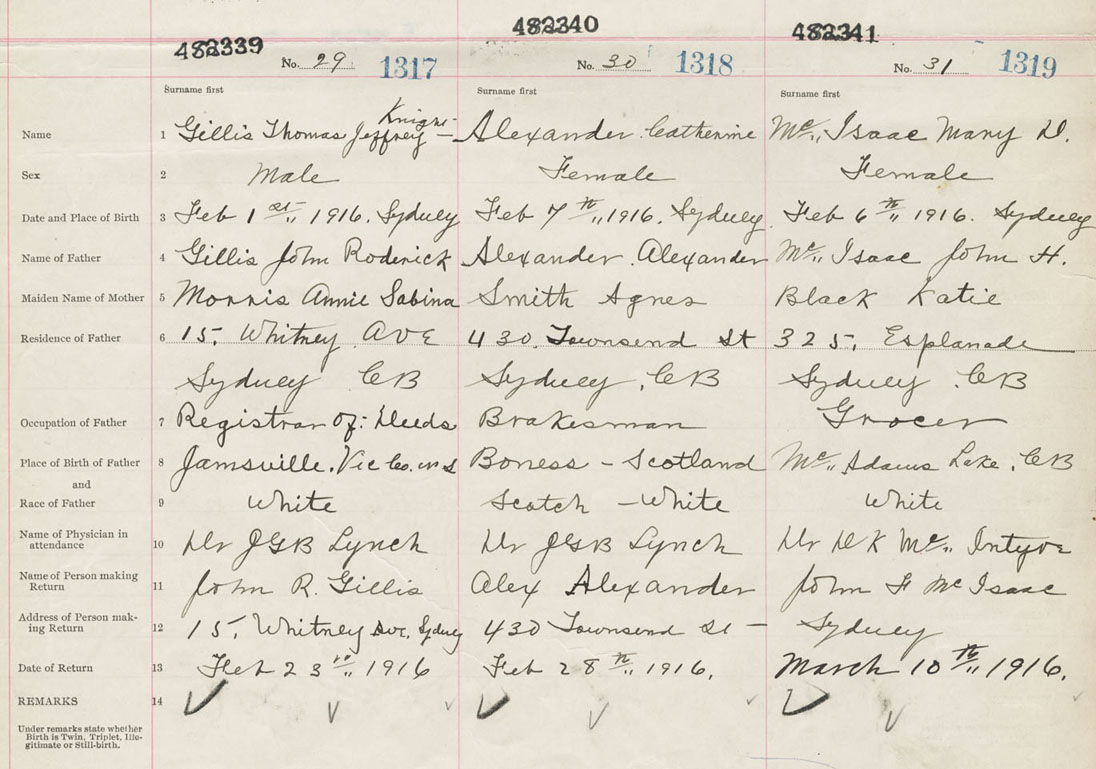 482339 482340 482341
No. 29 1317 No. 30 1318 No. 31 1319
Surname first Surname first Surname first
Knight
Name 1 Gillis Thomas Jeffrey — Alexander Catherine Mc,, Isaac Mary D.
Sex 2 Male Female Female
Date and Place of Birth 3 Feb 1st,, 1916. Sydney Feb 7th,, 1916. Sydney Feb 6th,, 1916. Sydney
Name of Father 4 Gillis John Roderick Alexander Alexander Mc,, Isaac John H.
Maiden Name of Mother 5 Morris Annie Sabina Smith Agnes Black Katie
Residence of Father 6 15, Whitney AVE 430. Townsend St 325, Esplanade
Sydney CB Sydney, CB Sydney CB
Occupation of Father 7 Registrar of: Deeds Brakesman Grocer
Place of Birth of Father 8 Jamsville, Vic Co. Boness - Scotland Mc,, Adams Lake, CB
and
Race of Father 9 White Scotch - White White
Name of Physician in
attendance 10 Dr JGB Lynch Dr JGB Lynch Dr DK Mc,, Intyre
Name of Person making
Return 11 John R. Gillis Alex Alexander John H Mc Isaac
Address of Person mak-
ing Return 12 15, Whitney Ave, Sydney 430 Townsend St - Sydney
Date of Return 13 Feb 23rd,, 1916 Feb 28th,, 1916. March 10th,, 1916.
REMARKS 14
Under remarks state whether
Birth is Twin, Triplet, Ille-
gitimate or Still-birth.